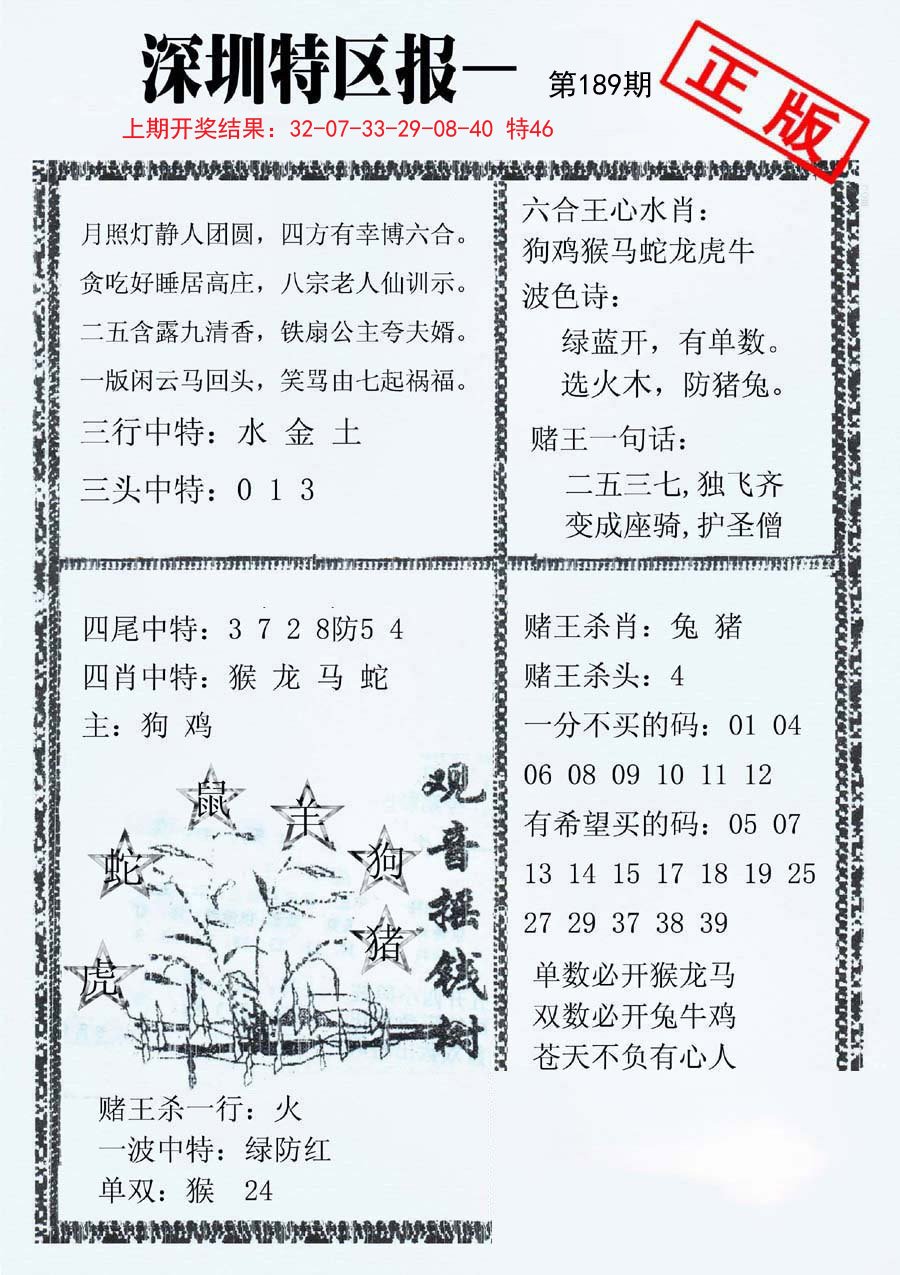 深圳特区报一 第189期
正版
上期开奖结果：32-07-33-29-08-40 特46
月照灯静人团圆，四方有幸博六合。
贪吃好睡居高庄，八宗老人仙训示。
二五含露九清香，铁扇公主夸夫婿。
一版闲云马回头，笑骂由七起祸福。
三行中特：水 金 土
三头中特：0 1 3
六合王心水肖：
狗鸡猴马蛇龙虎牛
波色诗：
绿蓝开，有单数。
选火木，防猪兔。
赌王一句话：
二五三七,独飞齐
变成座骑,护圣僧
四尾中特：3 7 2 8防5 4
四肖中特：猴 龙 马 蛇
主：狗 鸡
鼠
羊
蛇
狗
猪
虎
观音摇钱树
赌王杀一行：火
一波中特：绿防红
单双：猴 24
赌王杀肖：兔 猪
赌王杀头：4
一分不买的码：01 04
06 08 09 10 11 12
有希望买的码：05 07
13 14 15 17 18 19 25
27 29 37 38 39
单数必开猴龙马
双数必开兔牛鸡
苍天不负有心人